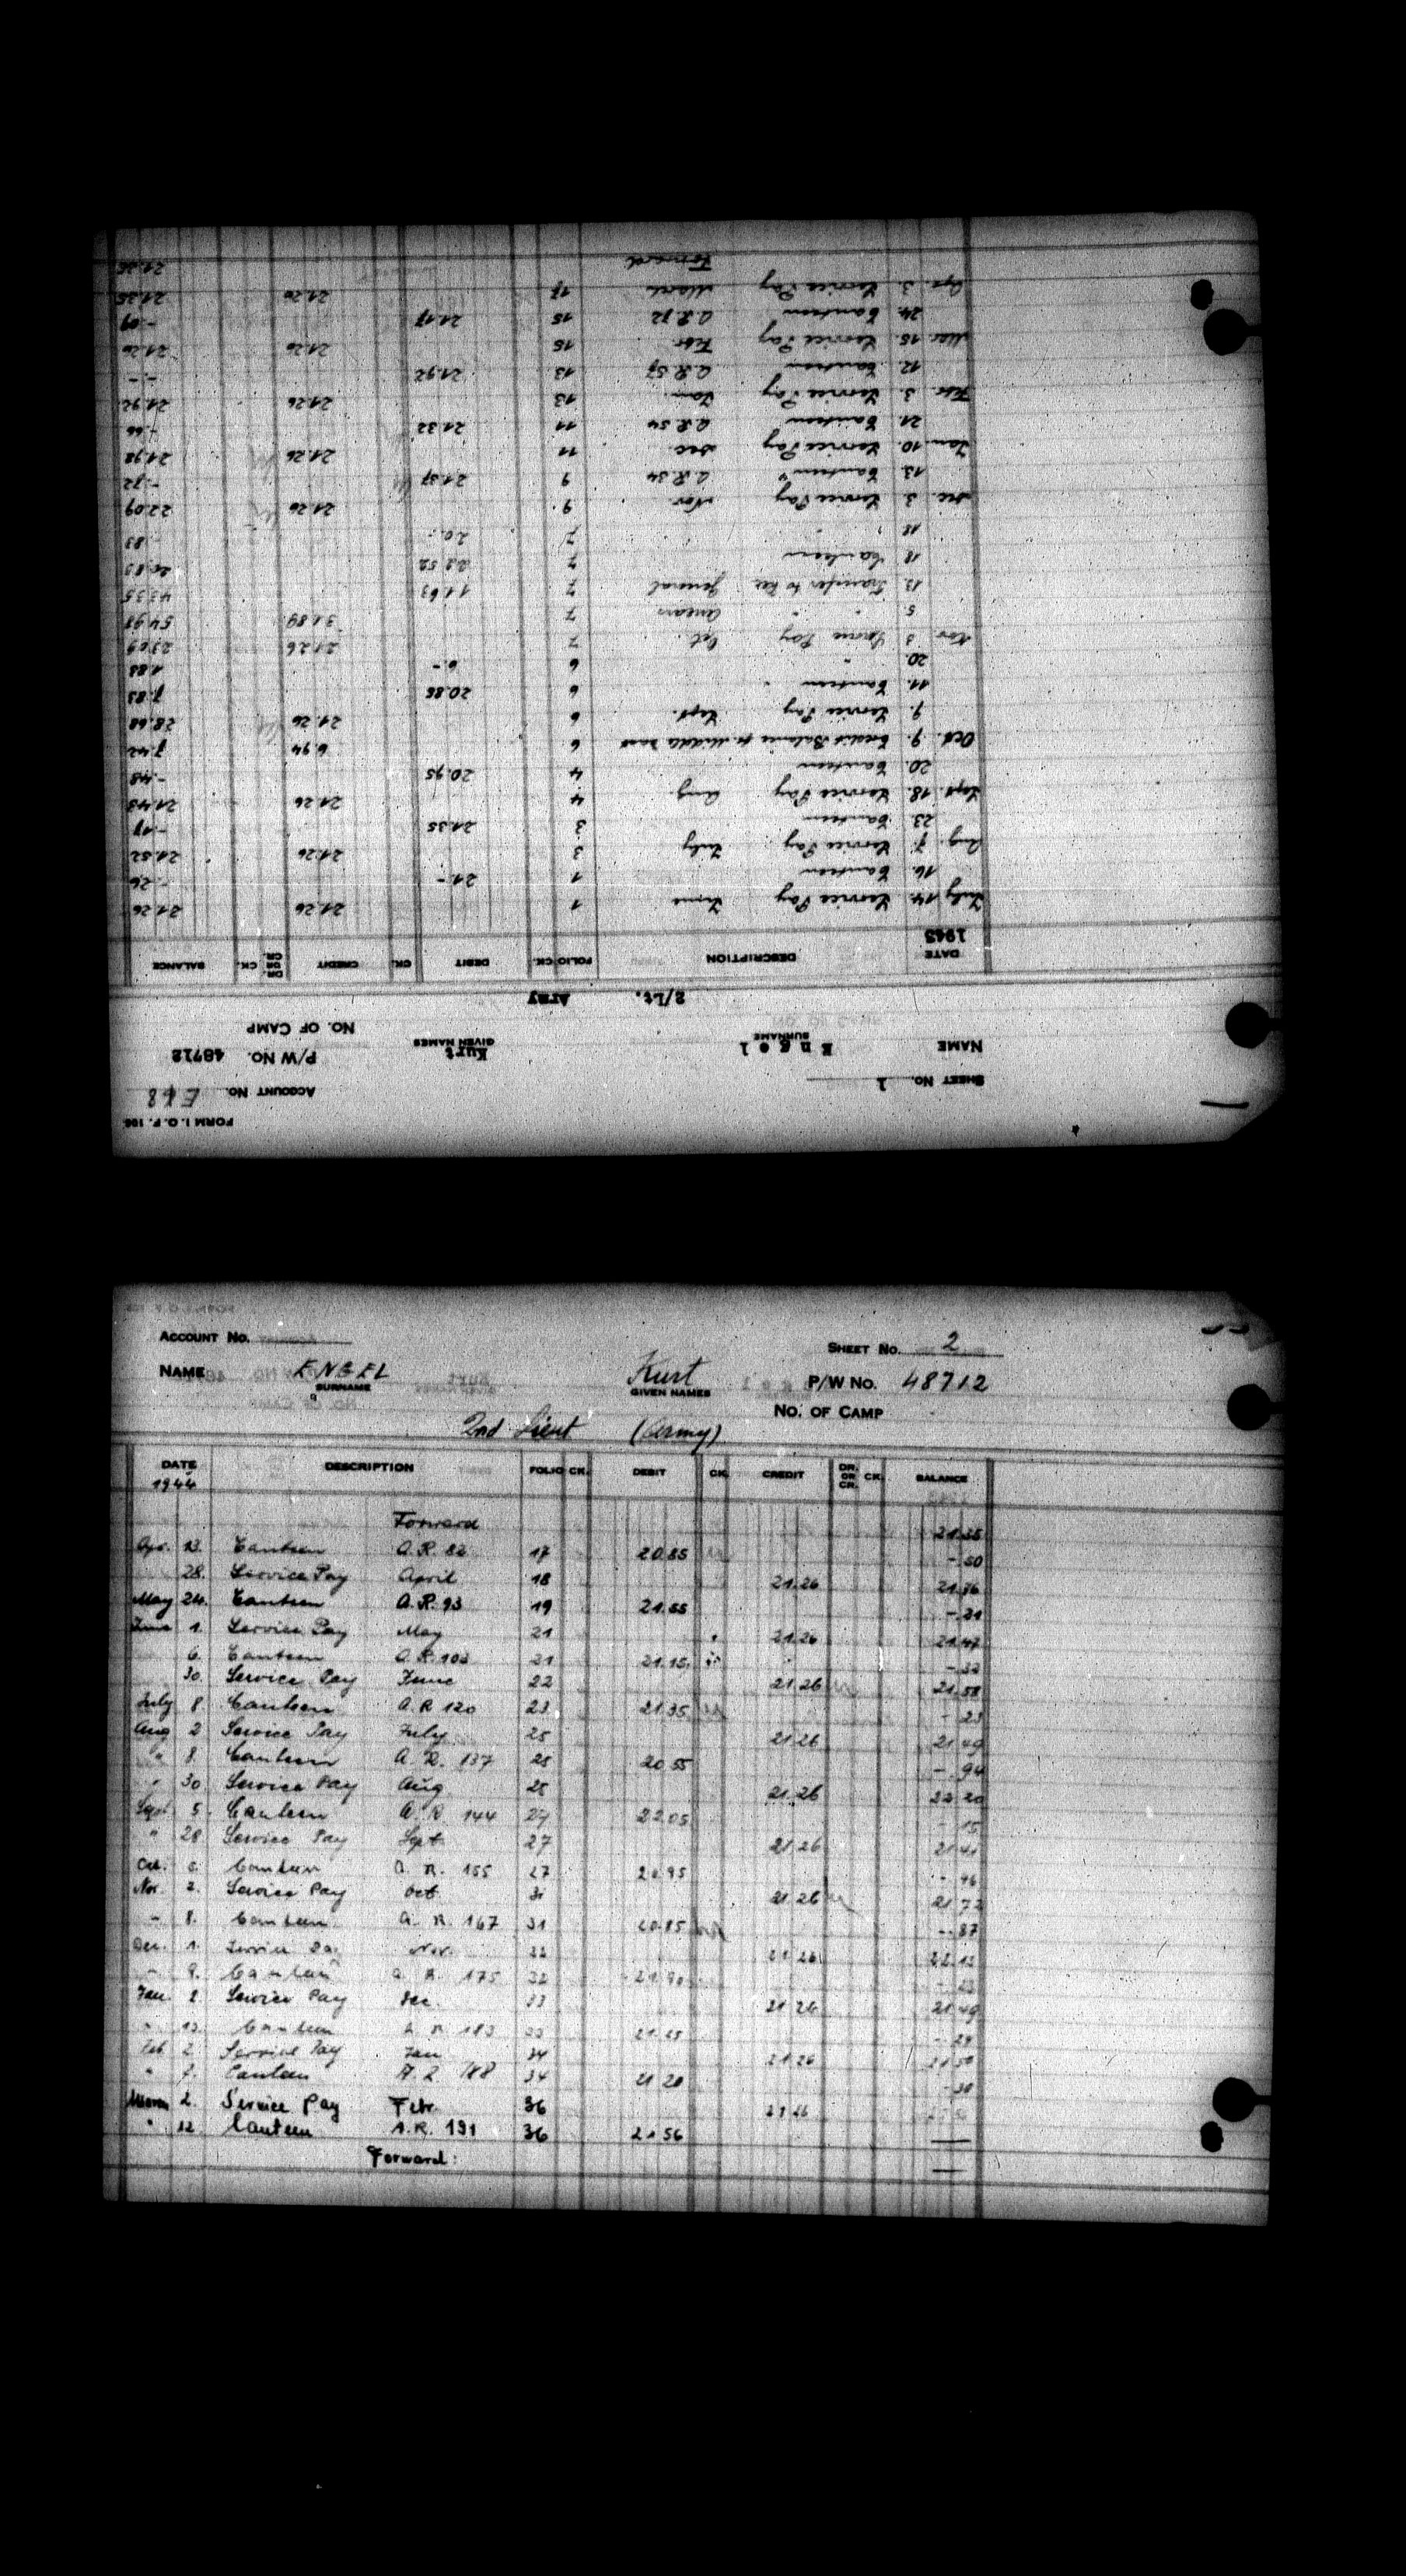 FORM I. O. F. 106
ACCOUNT NO. E48
SHEET NO. 1
NAME Engel Kurt P/W NO. 48712
SURNAME GIVEN NAMES
NO. OF CAMP
2/Lt. Army
DATE DESCRIPTION FOLIO CK. DEBIT CK. CREDIT DR. OR CR. CK. BALANCE
1943
July 14. Service Pay June 1 21.26 21.26
16. Canteen 1 21.- -.26
Aug. 7. Service Pay July 3 21.26 21.52
23. Canteen 3 21.35 -.17
Sept. 18. Service Pay Aug. 4 21.26 21.43
20. Canteen 4 20.95 -.48
Oct. 9. Credit Balance fr. Middle East 6 6.94 7.42
9. Service Pay Sept. 6 21.26 28.68
11. Canteen 6 20.85 7.83
20. " 6 6.- 1.83
Nov 3 Service Pay Oct. 7 21.26 23.09
5 " " Arrears 7 31.89 54.98
13. Transfer to Rec. General 7 11.63 43.35
18 Canteen 7 22.52 20.83
18 " 7 20.- -.83
Dec. 3 Service Pay Nov. 9. 21.26 22.09
13. Canteen A.R. 34 9 21.37 -.72
Jan. 10. Service Pay Dec. 11 21.26 21.98
21. Canteen A.R. 54 11 21.32 -.66
Febr. 3. Service Pay Jan. 13 21.26 21.92
12. Canteen A.R. 57 13 21.92 -.-
Mar. 15. Service Pay Febr. 15 21.26 21.26
24. Canteen A.R. 72 15 21.17 -.09
Apr. 3. Service Pay March 17 21.26 21.35
Forward 21.35
ACCOUNT NO.
SHEET NO. 2
NAME ENGEL Kurt P/W NO. 48712
SURNAME GIVEN NAMES
NO. OF CAMP
2nd Lieut (Army)
DATE DESCRIPTION FOLIO CK. DEBIT CK. CREDIT DR. OR CR. CK. BALANCE
1944
Forward 21.35
Apr. 13. Canteen A.R. 82 17 20.85 -.50
28. Service Pay April 18 21.26 21.76
May 24. Canteen A.R. 93 19 21.55 -.21
June 1. Service Pay May 21 21.26 21.47
6. Canteen A.R. 103 21 21.15 -.32
30. Service Pay June 22 21.26 21.58
July 8 Canteen A.R 120 23 21.35 -.23
Aug 2 Service Pay July 25 21.26 21.49
" 8. Canteen A.R. 137 25 20.55 -.94
" 30 Service Pay Aug 25 21.26 22.20
Sept 5. Canteen A.R 144 27 22.05 -.15
" 28 Service Pay Sept. 27 21.26 21.41
Oct. Canteen A.R. 155 27 20.95 -.46
Nov. 2. Service Pay Oct. 31 21.26 21.72
" 8. Canteen A.R. 167 31 20.85 -.87
Dec. 1. Service Pay Nov. 32 21.26 22.13
" 9. Canteen A.R. 175 32 21.90 -.23
Jan. 2. Service Pay Dec. 33 21.26 21.49
" 13. Canteen A.R. 183 33 21.25 -.24
Feb 2. Service Pay Jan 34 21.26 21.50
" 7. Canteen A.R. 188 34 21.20 -.30
March 2. Service Pay Febr. 36 21.26
" 12 Canteen A.R. 191 36 21.56 —
Forward: —